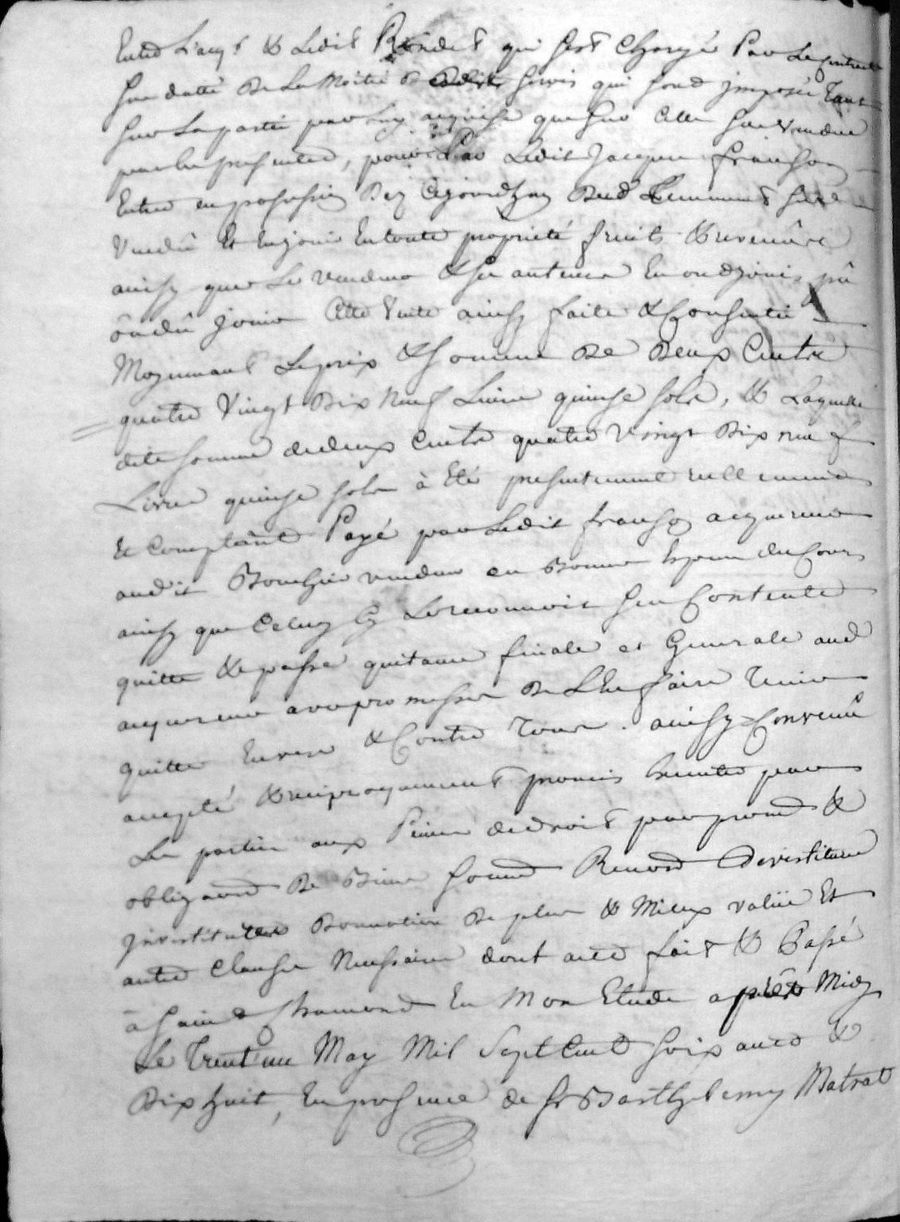 Entre Lacqt & Ledit Rondet qui sest Chargé Par Le Contrat
Sus datté De La Moitié Desdits servis qui sond jmposés tant
sur La partie par Luy acquise que sur Celle sus vendue
par les presentes, pour Par Ledit Jacques françon
Entrer en possession Dez Cejourdhuy Dud tenement sus
vendû Et En jouir En toute proprieté fruits & revenûs
ainsy que Le vendeur & ses autheurs En ond jouis pû
ou dû jouir Cette vente ainsy faite & Consentie
Moyennant Le prix & somme De Deux Cents
quatre Vingt Dix Neuf Livres quinse sols, & Laquelle
dite somme de deux Cents quatre vingt Dix neuf
Livres quinse sols à Eté presentement réellement
Et Comptânt Payé par Ledit françon acquereur
audit vendeur en Bonnes Especes du Cours
ainsy que Celuy Cy Le reconnoit sen Contente
quitte & passe quitance finale et Generale aud
acquereur avec promesse De L'En faire tenir
quitte Envers & Contre tous. ainsy Convenû
accepté & reciproquement promis Executer par
Les parties aux Peines de droit par promesse &
obligeand De Biens soumis Renond Devestiture
jnvestiture Donnation De plus & Mieux valüe Et
autres Clauses Necessaires dont acte fait & Passé
à Saint Chamond En Mon Etude après Midy
Le Trente un May Mil Sept Cent soixante &
Dix huit, En presence de Sr Barthelemy Matrat